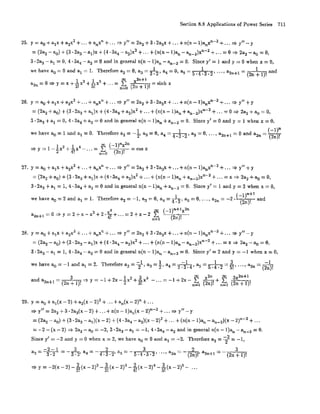 Section 8.8 Applications of Power Series 711
25. y = a₀ + a₁x + a₂x² + ... + aₙxⁿ + ... ⇒ y″ = 2a₂ + 3·2a₃x + ... + n(n − 1)aₙxⁿ⁻² + ... ⇒ y″ − y
= (2a₂ − a₀) + (3·2a₃ − a₁)x + (4·3a₄ − a₂)x² + ... + (n(n − 1)aₙ − aₙ₋₂)xⁿ⁻² + ... = 0 ⇒ 2a₂ − a₀ = 0,
3·2a₃ − a₁ = 0, 4·3a₄ − a₂ = 0 and in general n(n − 1)aₙ − aₙ₋₂ = 0. Since y′ = 1 and y = 0 when x = 0,
we have a₀ = 0 and a₁ = 1. Therefore a₂ = 0, a₃ = 1/(3·2), a₄ = 0, a₅ = 1/(5·4·3·2), ..., a₂ₙ₊₁ = 1/(2n + 1)! and
a₂ₙ = 0 ⇒ y = x + 1/3! x³ + 1/5! x⁵ + ... = Σ x²ⁿ⁺¹/(2n + 1)! = sinh x
26. y = a₀ + a₁x + a₂x² + ... + aₙxⁿ + ... ⇒ y″ = 2a₂ + 3·2a₃x + ... + n(n − 1)aₙxⁿ⁻² + ... ⇒ y″ + y
= (2a₂ + a₀) + (3·2a₃ + a₁)x + (4·3a₄ + a₂)x² + ... + (n(n − 1)aₙ + aₙ₋₂)xⁿ⁻² + ... = 0 ⇒ 2a₂ + a₀ = 0,
3·2a₃ + a₁ = 0, 4·3a₄ + a₂ = 0 and in general n(n − 1)aₙ + aₙ₋₂ = 0. Since y′ = 0 and y = 1 when x = 0,
we have a₀ = 1 and a₁ = 0. Therefore a₂ = −1/2, a₃ = 0, a₄ = 1/(4·3·2), a₅ = 0, ..., a₂ₙ₊₁ = 0 and a₂ₙ = (−1)ⁿ/(2n)!
⇒ y = 1 − 1/2 x² + 1/4! x⁴ − ... = Σ (−1)ⁿx²ⁿ/(2n)! = cos x
27. y = a₀ + a₁x + a₂x² + ... + aₙxⁿ + ... ⇒ y″ = 2a₂ + 3·2a₃x + ... + n(n − 1)aₙxⁿ⁻² + ... ⇒ y″ + y
= (2a₂ + a₀) + (3·2a₃ + a₁)x + (4·3a₄ + a₂)x² + ... + (n(n − 1)aₙ + aₙ₋₂)xⁿ⁻² + ... = x ⇒ 2a₂ + a₀ = 0,
3·2a₃ + a₁ = 1, 4·3a₄ + a₂ = 0 and in general n(n − 1)aₙ + aₙ₋₂ = 0. Since y′ = 1 and y = 2 when x = 0,
we have a₀ = 2 and a₁ = 1. Therefore a₂ = −1, a₃ = 0, a₄ = 1/(4·3), a₅ = 0, ..., a₂ₙ = −2·(−1)ⁿ⁺¹/(2n)! and
a₂ₙ₊₁ = 0 ⇒ y = 2 + x − x² + 2·x⁴/4! + ... = 2 + x − 2 Σ (−1)ⁿ⁺¹x²ⁿ/(2n)!
28. y = a₀ + a₁x + a₂x² + ... + aₙxⁿ + ... ⇒ y″ = 2a₂ + 3·2a₃x + ... + n(n − 1)aₙxⁿ⁻² + ... ⇒ y″ − y
= (2a₂ − a₀) + (3·2a₃ − a₁)x + (4·3a₄ − a₂)x² + ... + (n(n − 1)aₙ − aₙ₋₂)xⁿ⁻² + ... = x ⇒ 2a₂ − a₀ = 0,
3·2a₃ − a₁ = 1, 4·3a₄ − a₂ = 0 and in general n(n − 1)aₙ − aₙ₋₂ = 0. Since y′ = 2 and y = −1 when x = 0,
we have a₀ = −1 and a₁ = 2. Therefore a₂ =
and a₂ₙ₊₁ = 3/(2n + 1)! ⇒ y = −1 + 2x −
29. y = a₀ + a₁(x − 2) + a₂(x − 2)² + ... + aₙ(x − 2)ⁿ + ...
⇒ y″ = 2a₂ + 3·2a₃(x − 2) + ... + n(n − 1)aₙ(x − 2)ⁿ⁻² + ... ⇒ y″ − y
= (2a₂ − a₀) + (3·2a₃ − a₁)(x − 2) + (4·3a₄ − a₂)(x − 2)² + ... + (n(n − 1)aₙ − aₙ₋₂)(x − 2)ⁿ⁻² + ...
= −2 − (x − 2) ⇒ 2a₂ − a₀ = −2, 3·2a₃ − a₁ = −1, 4·3a₄ − a₂ and in general n(n − 1)aₙ − aₙ₋₂ = 0.
Since y′ = −2 and y = 0 when x = 2, we have a₀ = 0 and a₁ = −2. Therefore a₂ = −2/2 = −1,